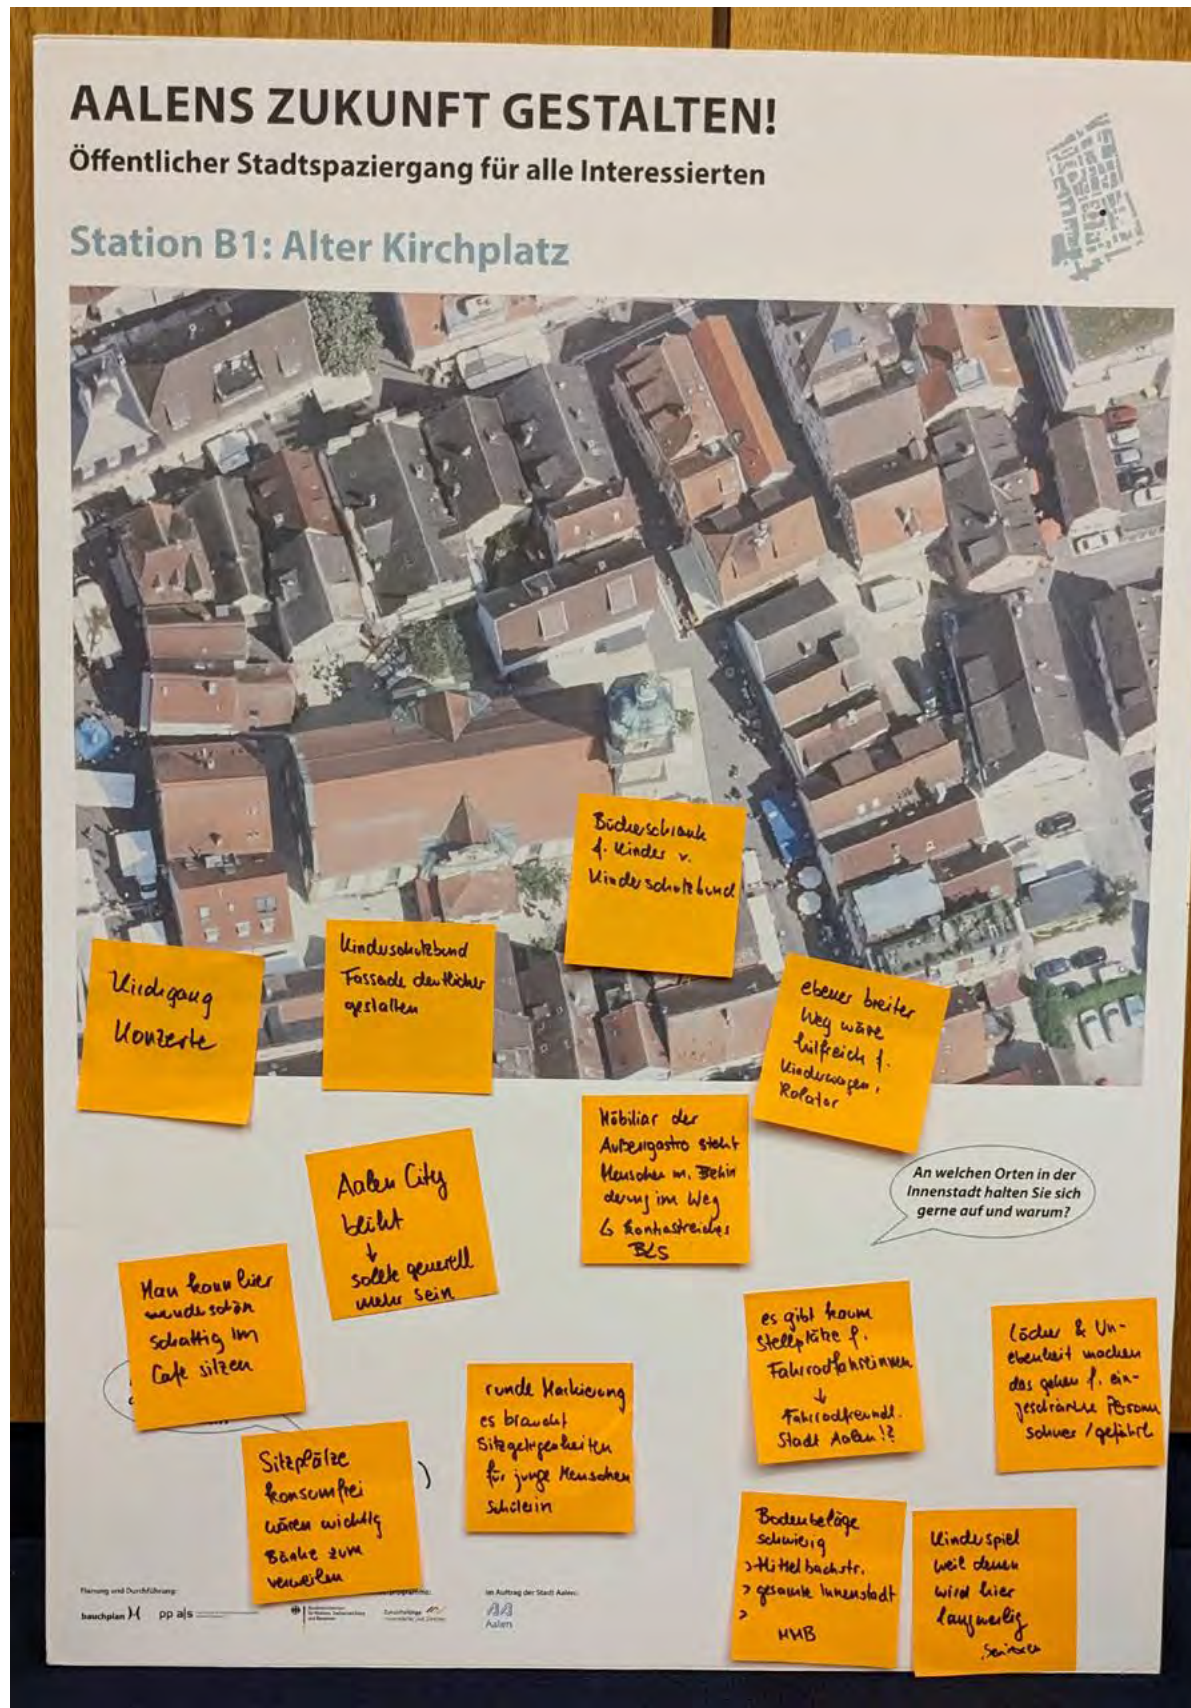 AALENS ZUKUNFT GESTALTEN!
Öffentlicher Stadtspaziergang für alle Interessierten
Station B1: Alter Kirchplatz
Bücherschrank
f. Kinder v.
Kinderschutzbund
Kinderschutzbund
Fassade deutlicher
gestalten
Kirchgang
Konzerte
ebener breiter
Weg wäre
hilfreich f.
Kinderwagen,
Rolator
Möbiliar der
Außengastro steht
Menschen m. Behin
derung im Weg
↳ kontrastreiches
BLS
An welchen Orten in der
Innenstadt halten Sie sich
gerne auf und warum?
Aalen City
blüht
↓
sollte generell
mehr sein
Man kann hier
wunderschön
schattig im
Cafe sitzen
es gibt kaum
Stellplätze f.
Fahrradfahrerinnen
↓
Fahrradfreundl.
Stadt Aalen!?
Löcher & Un-
ebenheit machen
das gehen f. ein-
geschränkte Personen
schwer / gefährl.
runde Markierung
es braucht
Sitzgelegenheiten
für junge Menschen
Sitzplätze
konsumfrei
wären wichtig
Bänke zum
verweilen
Bodenbeläge
schwierig
> Mittelbachstr.
> gesamte Innenstadt
>
MMB
Kinderspiel
weil denen
wird hier
langweilig
Planung und Durchführung:
im Auftrag der Stadt Aalen:
bauchplan
pp a|s
Aalen